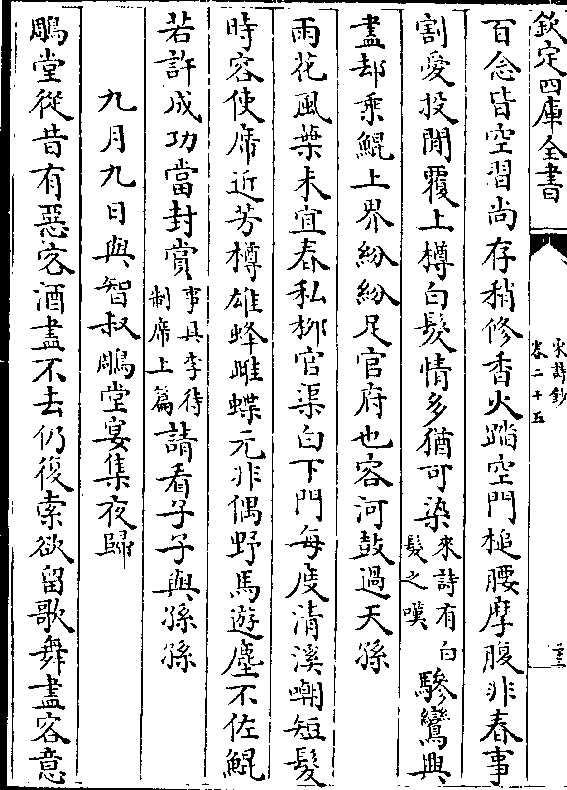 欽定四庫全書
宋詩鈔
卷二十五
百念皆空習尚存稍修香火踏空門槌腰摩腹非春事
割愛投閒覆上樽白髮情多猶可染來詩有白髮之嘆驂鸞興
盡却乘鯤上界紛紛足官府也容河鼓過天孫
雨花風葉未宜春私柳官渠白下門每度清溪嘲短髮
時容使席近芳樽雄蜂雌蝶元非偶野馬遊塵不佐鯤
若許成功當封賞事具李待制席上篇請看子子與孫孫
九月九日與智叔鵰堂宴集夜歸
鵰堂從昔有惡客酒盡不去仍復索欲留歌舞盡客意